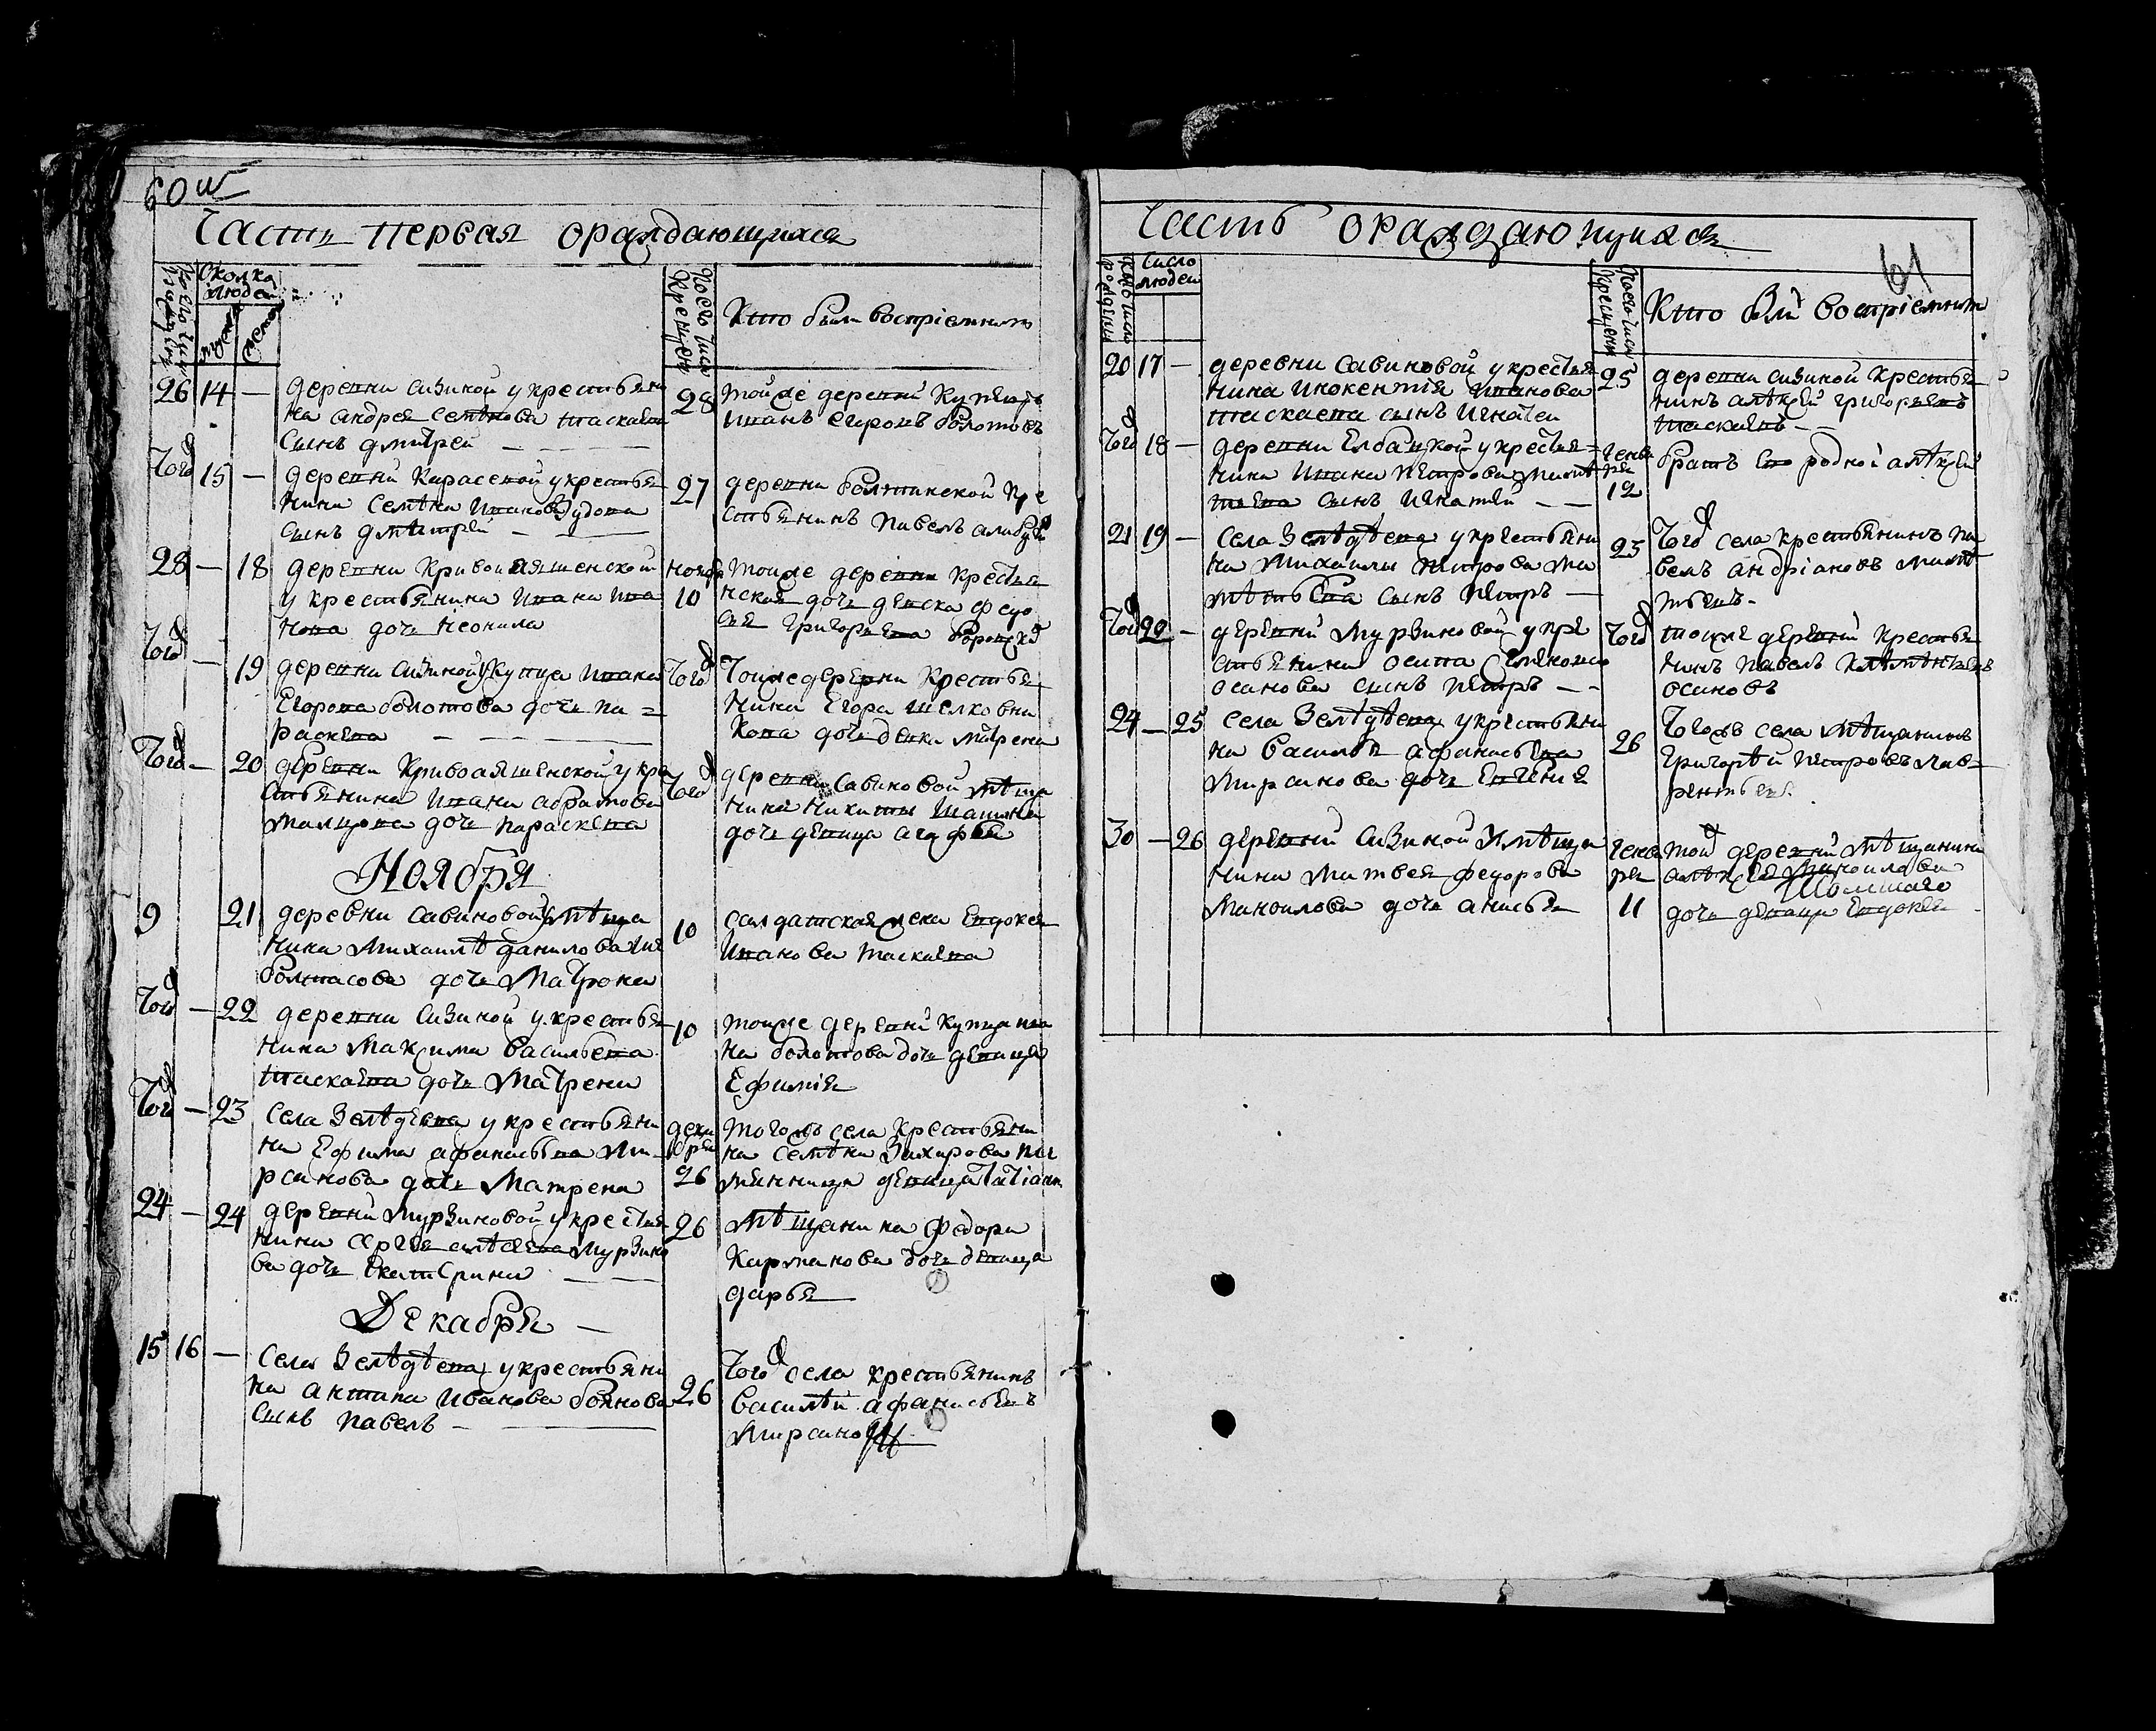 60 об
Часть первая о раждающихся
Сколко
людей
Кто были воспріемники
26 14 — деревни Сизикой у крестьяни
на Андрея Семѣнова Таскаева
сынъ Дмитрей
28 тойже деревни купецъ
Иванъ Егоровъ Болотовъ
Того 15 — деревни Карасевой у крестья
нина Семѣна Иванова Зудова
сынъ Дмѣтрей
27 деревни Болтинской кре
стьянинъ Павелъ
28 — 18 деревни Кривояшенской
у крестьянина Ивана Ива
нова дочь Неонила
ноября 10 тойже деревни крестья
нская дочь девка Федо
сья Григорьева
Того — 19 деревни Сизикой у купца Ивана
Егорова Болотова дочь Па=
раскева
Того тойже деревни крестья
нина Егора Шелковни
кова дочь девка Матрена
Того — 20 деревни Кривояшенской у кре
стьянина Ивана Абрамова
Малцова дочь Параскева
Того деревни Савиновой мѣща
нина Никиты
дочь девица Агафья
Ноября
9 21 деревни Савиновой у мѣща
нина Михаилѣ Данилова
Болтасова дочь Матрона
10 салдатская жена Евдокея
Иванова Таскаева
Того — 22 деревни Сизикой у крестья
нина Максима Васильева
Таскаева дочь Матрена
10 тойже деревни купца Ива
на Болотова дочь девица
Ефимія
Того — 23 села Зелѣдева у крестьяни
на Ефима Афанасьева Ми
рсанова дочь Матрена
декабря 26 тогожъ села крестьяни
на Семѣна Захарова пле
мянница девица Татіана
24 — 24 деревни Мурзиновой у крестья
нина Сергея Алѣѣева Мурзино
ва дочь Екатерина
26 мѣщанина Федора
Карманова дочь девица
Дарья
Декабря —
15 16 — села Зелѣдѣева у крестьяни
на Антипа Иванова Боянова
сынъ Павелъ
26 Того села крестьянинъ
Василѣй Афанасьевъ
Мирсановъ
Часть о раждающихся
61
Число
людей
Кто был воспріемник
20 17 — деревни Савиновой у крестья
нина Инокентія Иванова
Таскаева сынъ Игнатей
25 деревни Сизикой крестья
нинъ Алѣксѣй Григорьевъ
Таскаевъ
Того 18 — деревни Елбацкой у крестья=
нина Ивана Петрова Матвѣ
ева сынъ Игнатей
генва
ря
12 братъ ево родной Алѣксѣй
21 19 — села Зелѣдѣева у крестьяни
на Михаилы Петрова Ма
твѣева сынъ Петръ —
25 Того села крестьянинъ Па
велъ Андріановъ Матв
ѣевъ.
Того 20 — деревни Мурзиновой у кре
стьянина Осипа
Осипова сынъ Петръ — -
Того тойже деревни крестья
нинъ Павелъ
Осиповъ
24 — 25 села Зелѣдѣева у крестьяни
на Василья Афанасьева
Мирсанова дочь Евгенія
26 Тогожъ села мѣщанинъ
Григорѣй Петровъ Лав=
рентьевъ.
30 — 26 деревни Сизикой у мѣща
нина Матвея Федорова
Маноилова дочь Анисья
генва
ря
11 той деревни мѣщанина
Алѣксѣя Маноилова
дочь девица Евдокея